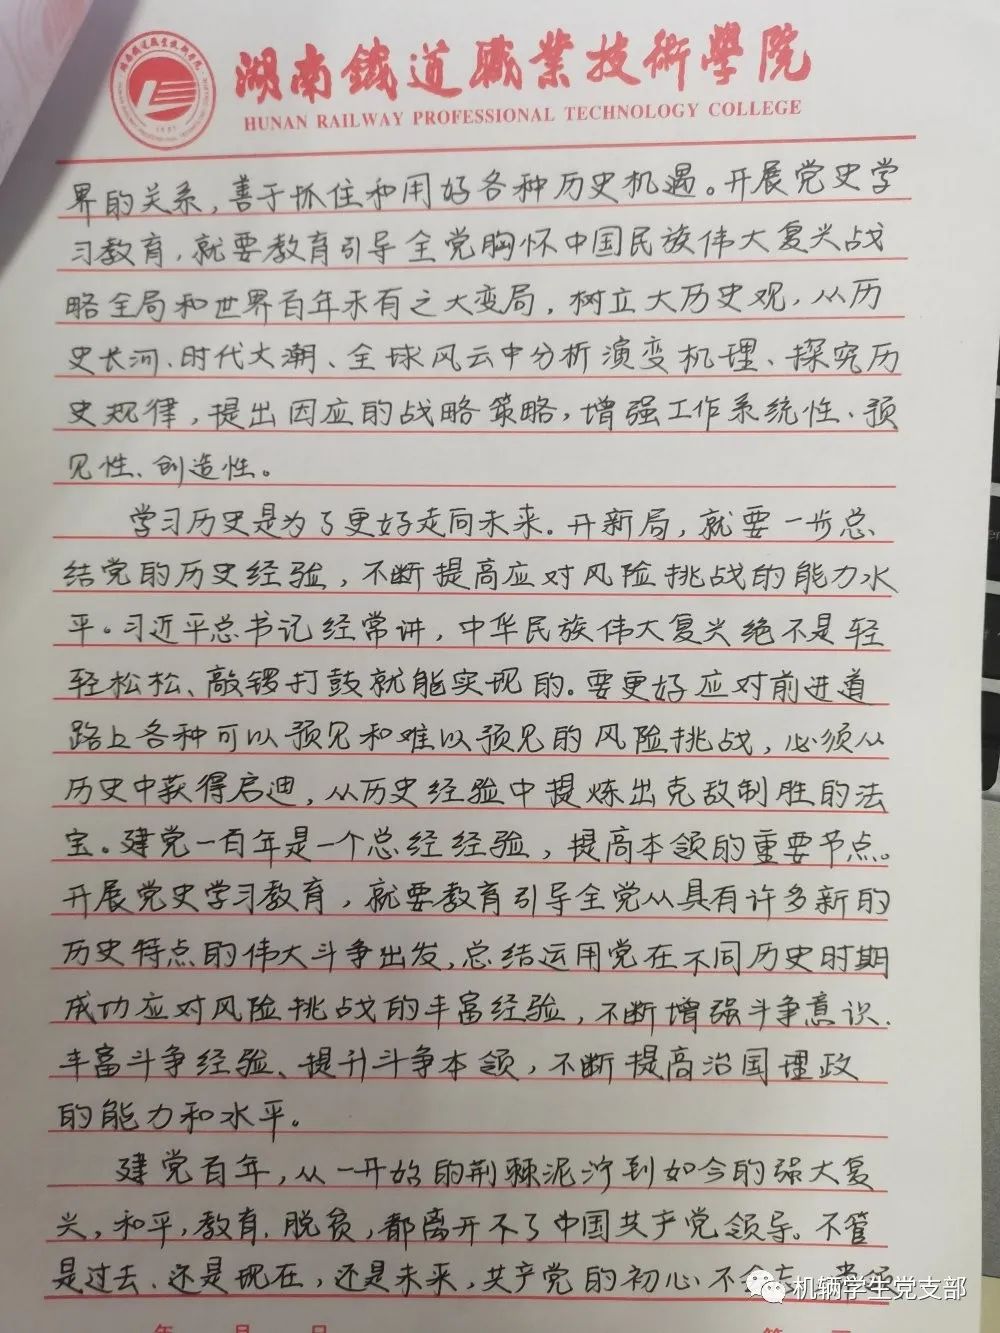 湖南鐵道職業技術學院
HUNAN RAILWAY PROFESSIONAL TECHNOLOGY COLLEGE
界的关系,善于抓住和用好各种历史机遇。开展党史学
习教育,就要教育引导全党胸怀中国民族伟大复兴战
略全局和世界百年未有之大变局,树立大历史观,从历
史长河、时代大潮、全球风云中分析演变机理、探究历
史规律,提出因应的战略策略,增强工作系统性、预
见性、创造性。
学习历史是为了更好走向未来。开新局,就要一步总
结党的历史经验,不断提高应对风险挑战的能力水
平。习近平总书记经常讲,中华民族伟大复兴绝不是轻
轻松松、敲锣打鼓就能实现的。要更好应对前进道
路上各种可以预见和难以预见的风险挑战,必须从
历史中获得启迪,从历史经验中提炼出克敌制胜的法
宝。建党一百年是一个总经经验,提高本领的重要节点。
开展党史学习教育,就要教育引导全党从具有许多新的
历史特点的伟大斗争出发,总结运用党在不同历史时期
成功应对风险挑战的丰富经验,不断增强斗争意识、
丰富斗争经验、提升斗争本领,不断提高治国理政
的能力和水平。
建党百年,从一开始的荆棘泥泞到如今的强大复
兴,和平,教育,脱贫,都离开不了中国共产党领导。不管
是过去、还是现在,还是未来,共产党的初心不会
机辆学生党支部
年 月 日